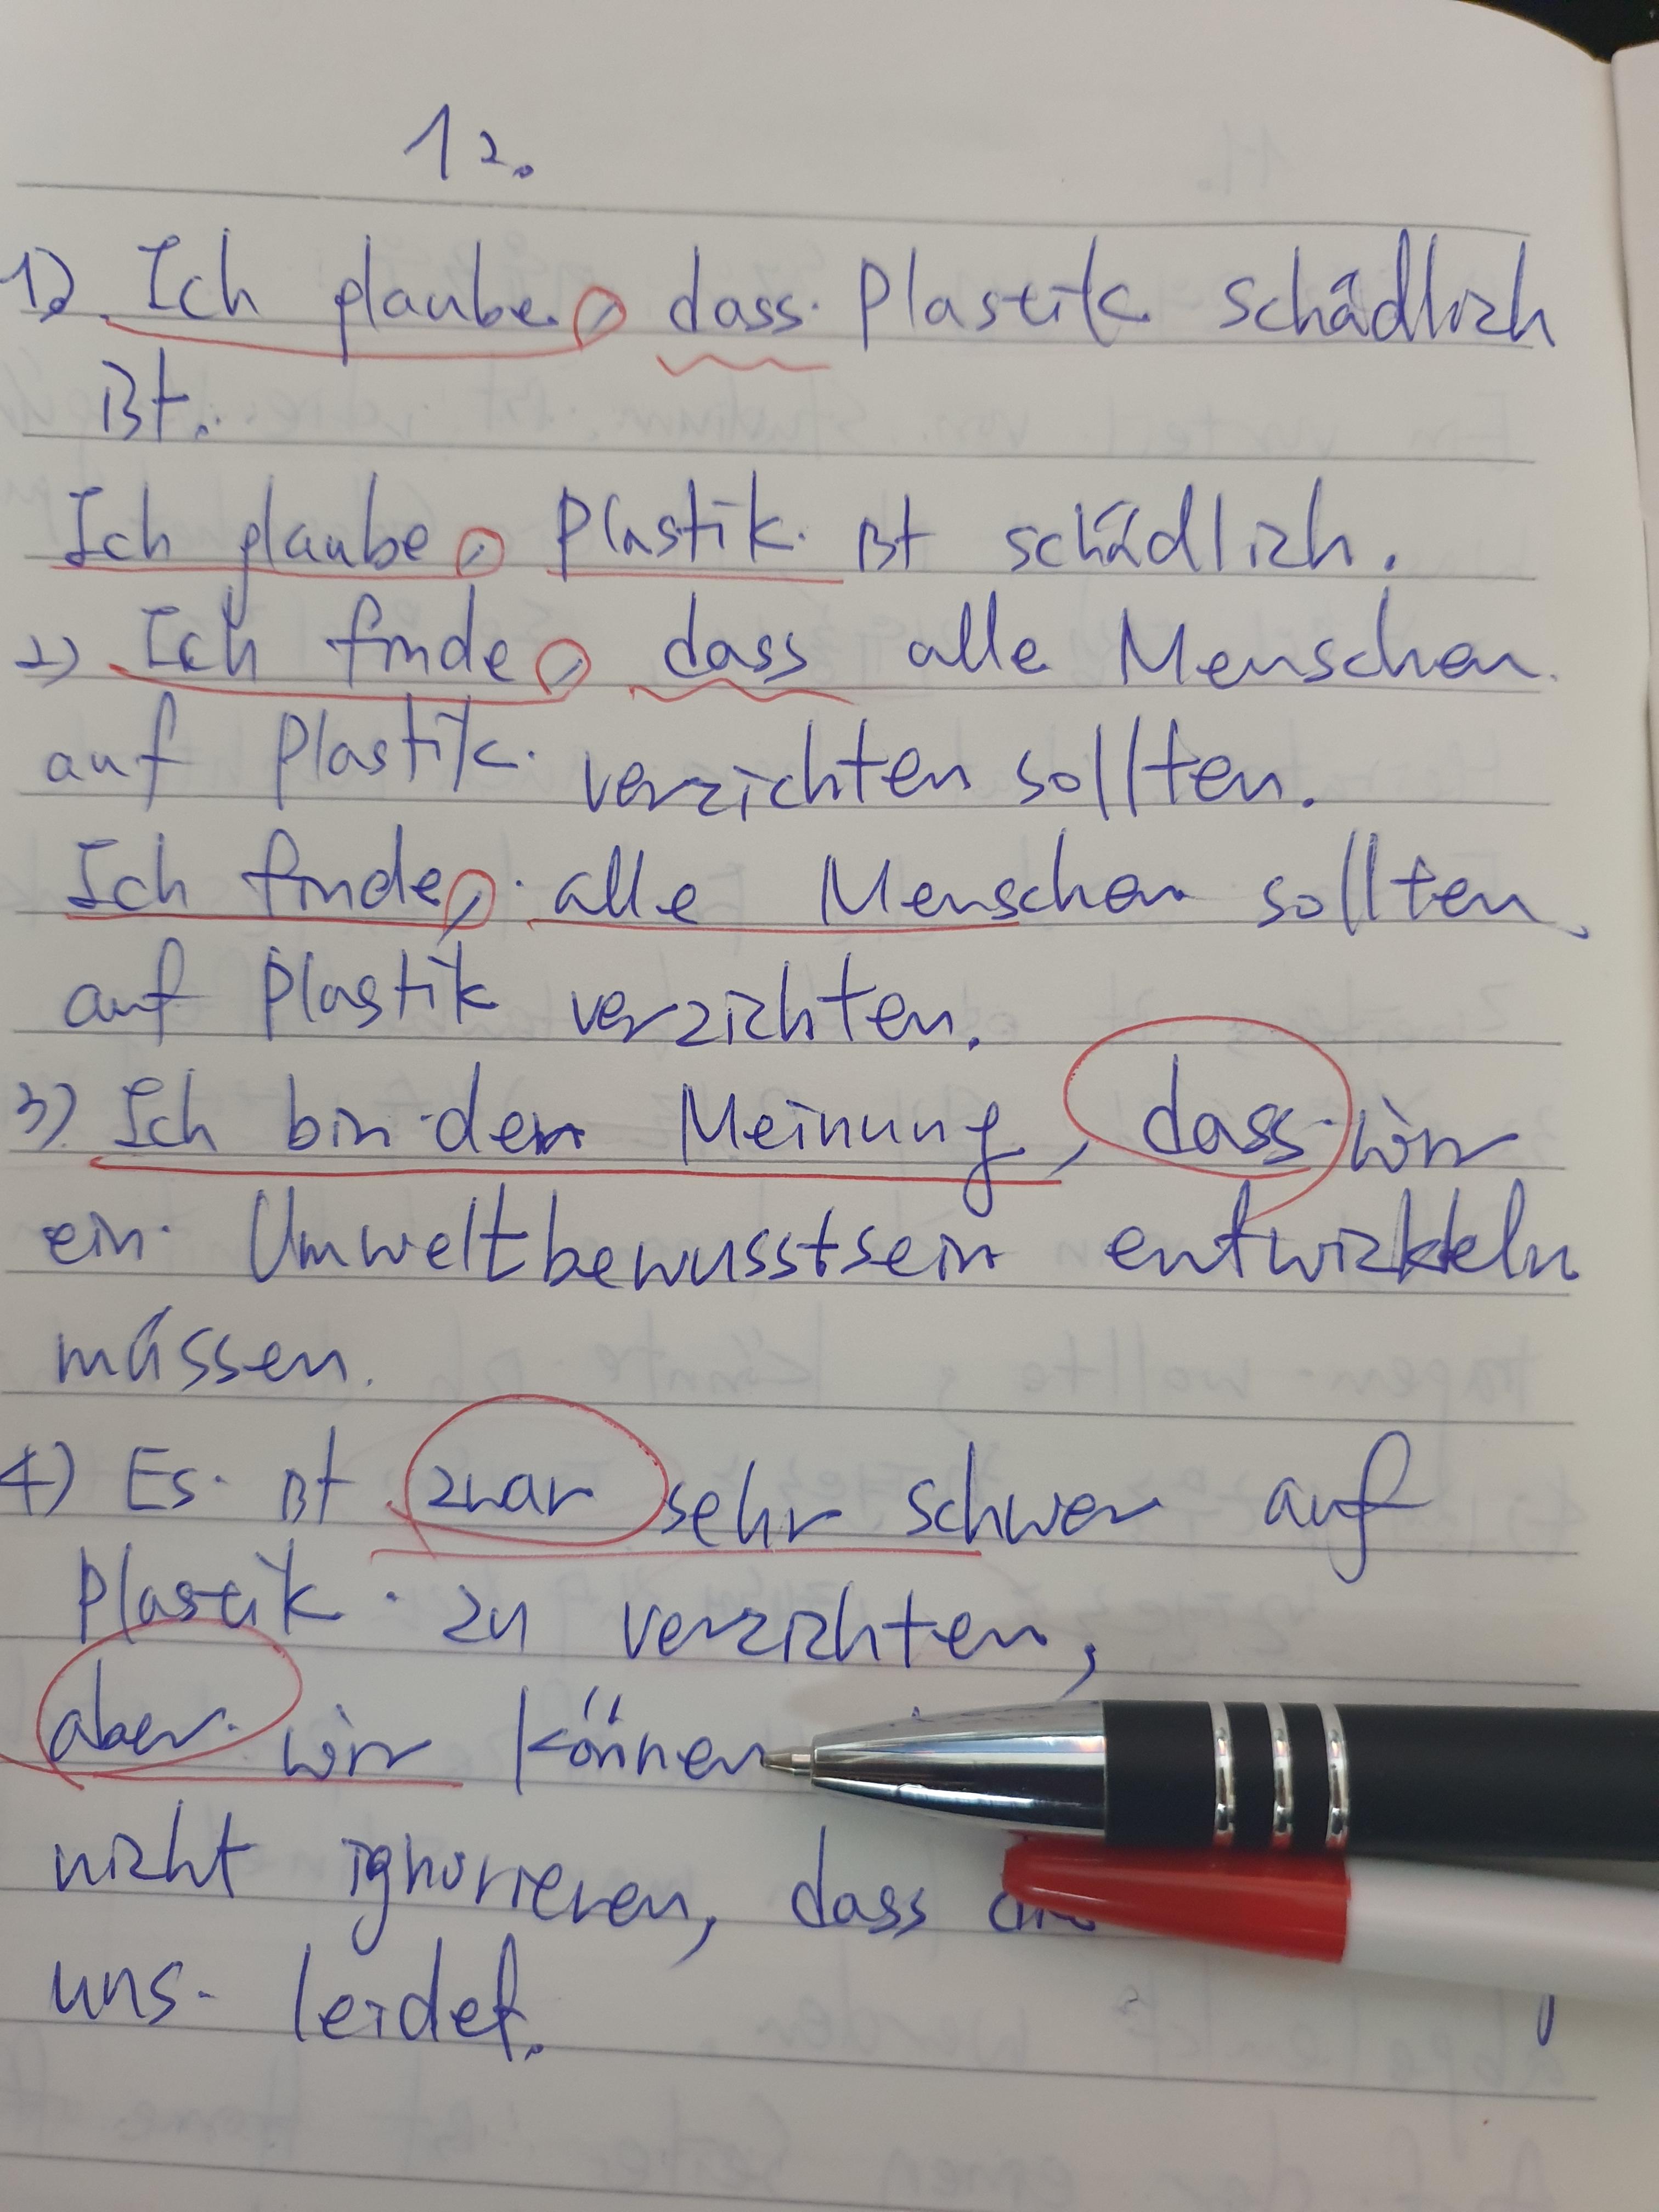 12.
1) Ich glaube, dass Plastik schädlich
ist.
Ich glaube, Plastik ist schädlich.
2) Ich finde, dass alle Menschen
auf Plastik verzichten sollten.
Ich finde, alle Menschen sollten
auf Plastik verzichten.
3) Ich bin der Meinung, dass wir
ein Umweltbewusstsein entwickeln
müssen.
4) Es ist zwar sehr schwer auf
Plastik zu verzichten,
aber wir können
nicht ignorieren, dass
uns leidet.